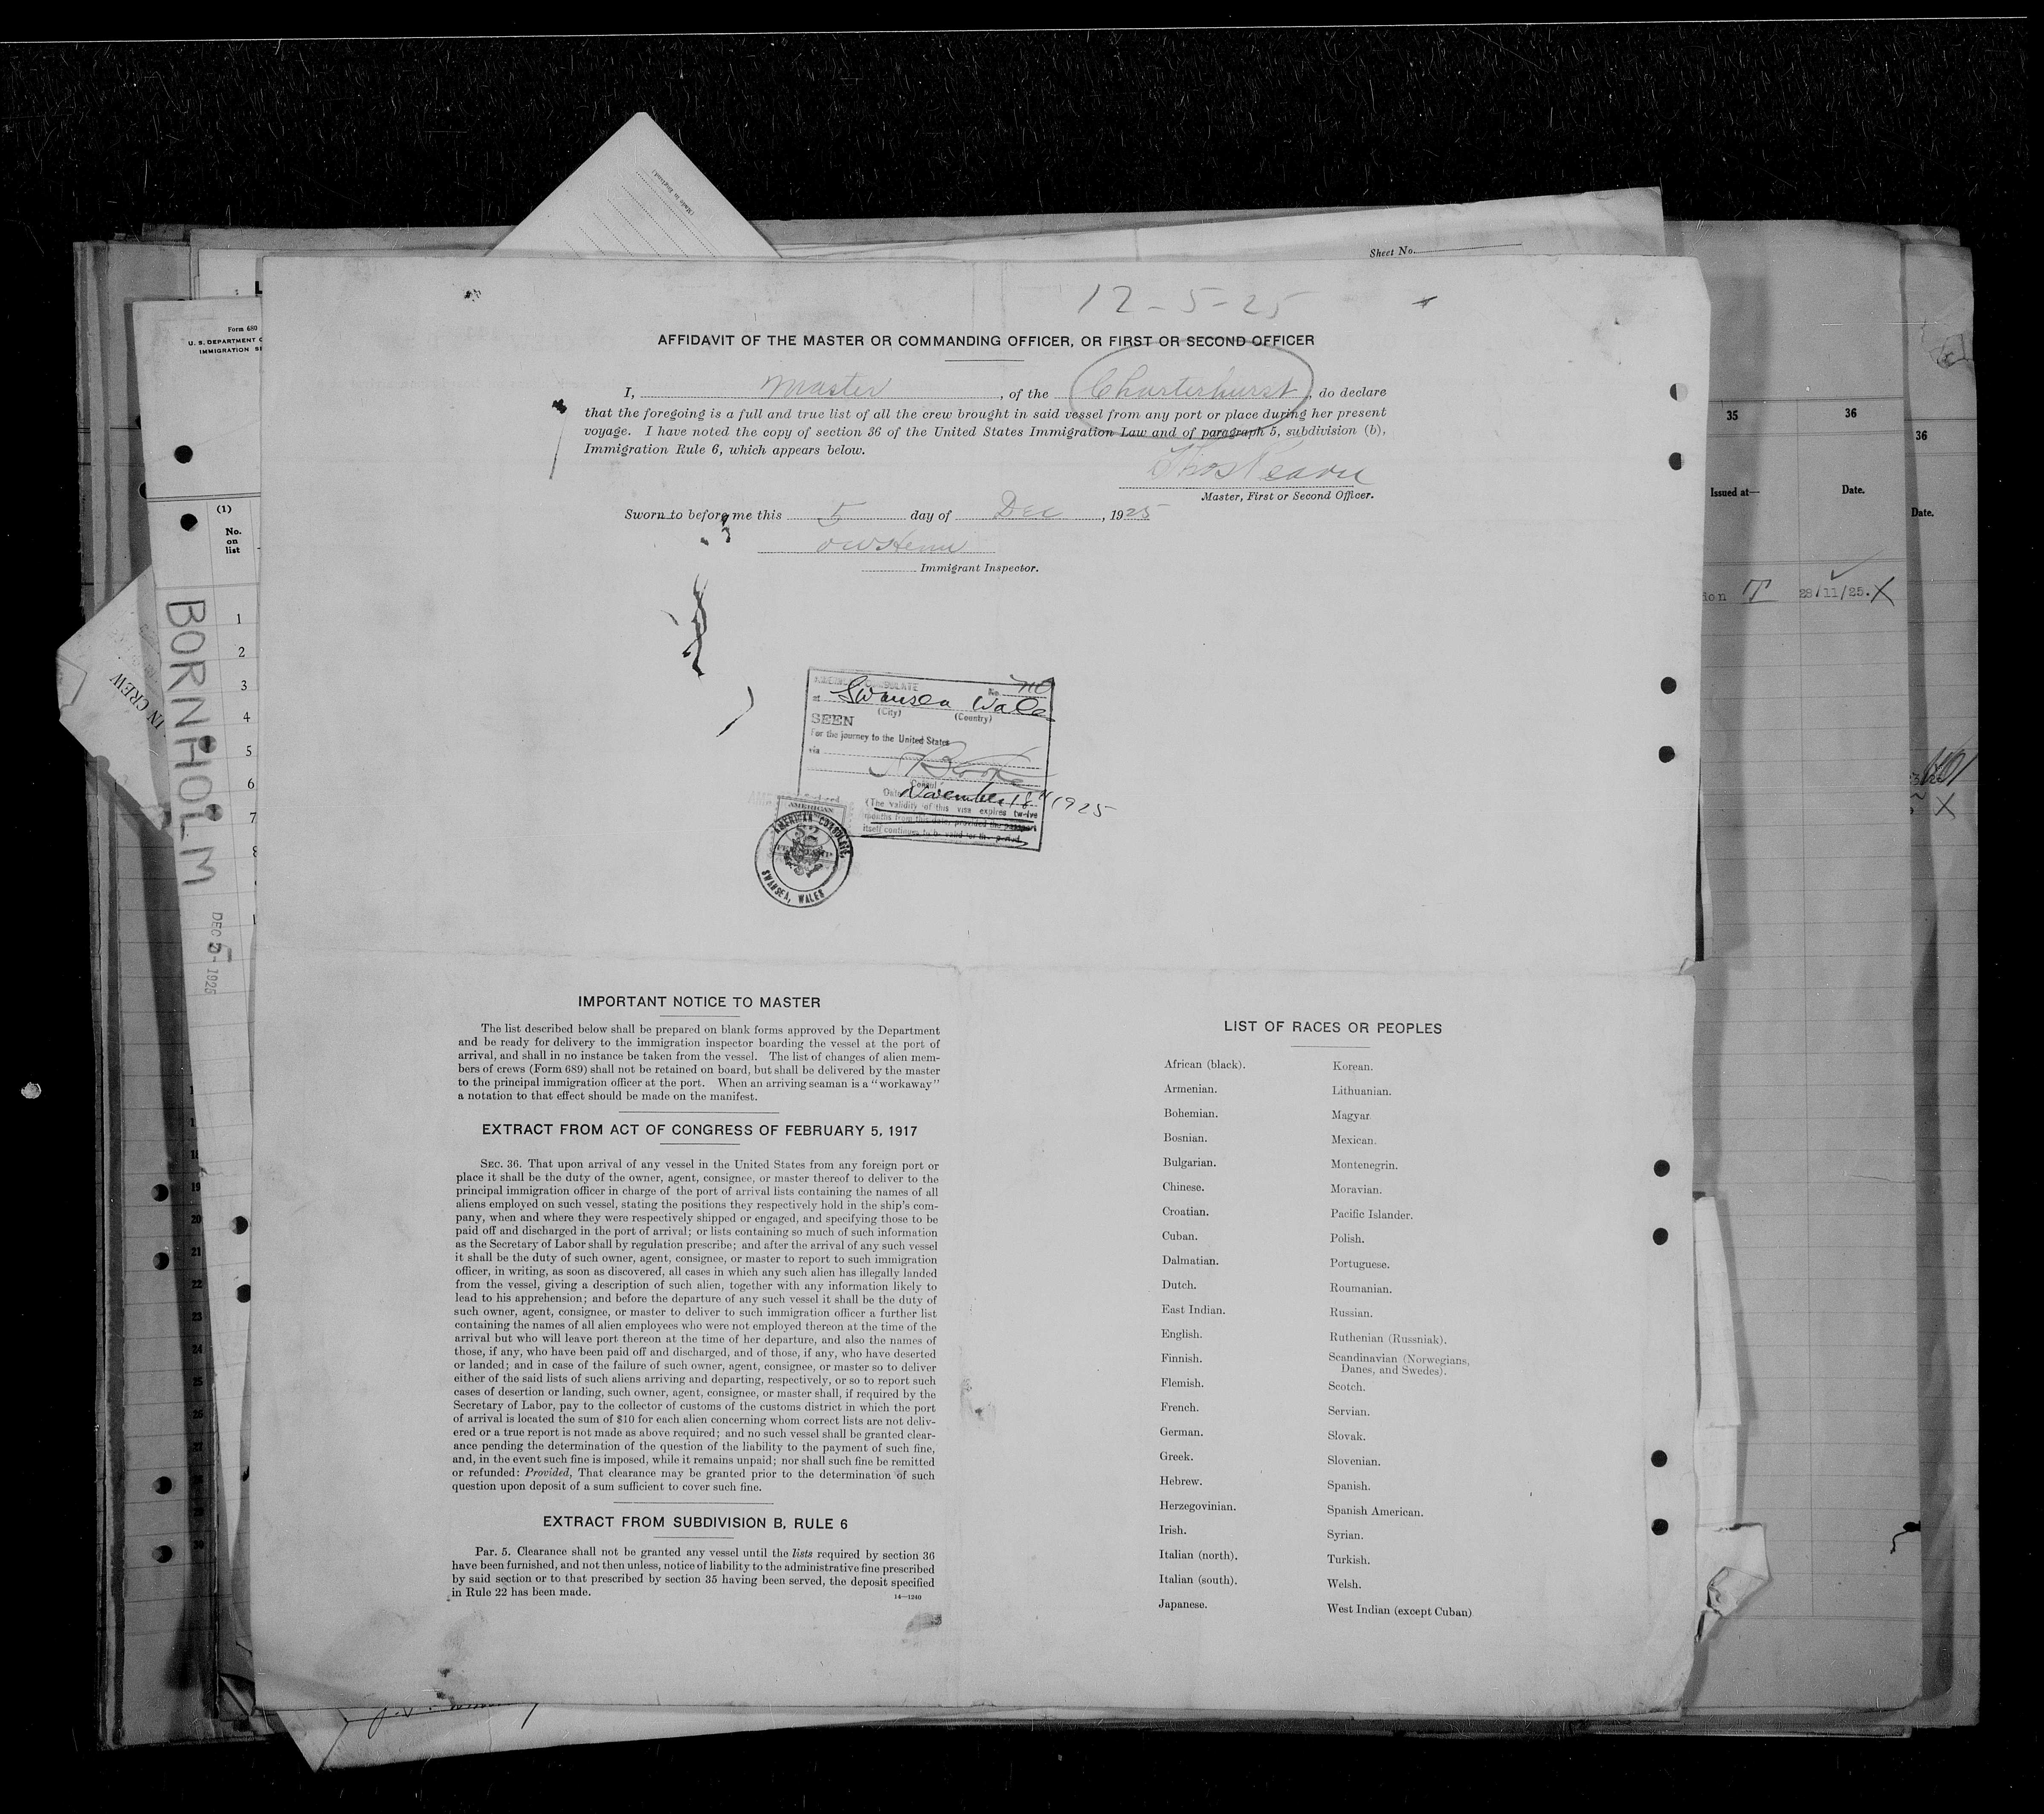 (Made in England)
Sheet No.
12-5-25
Form 680
U. S. DEPARTMENT
IMMIGRATION
(1)
No.
on
list
1
2
3
4
5
6
7
BORNHOLM
DEC 5-1925
IN CREW
AFFIDAVIT OF THE MASTER OR COMMANDING OFFICER, OR FIRST OR SECOND OFFICER
I, Master, of the Charterhurst, do declare
that the foregoing is a full and true list of all the crew brought in said vessel from any port or place during her present
voyage. I have noted the copy of section 36 of the United States Immigration Law and of paragraph 5, subdivision (b),
Immigration Rule 6, which appears below.
Master, First or Second Officer.
Sworn to before me this 5 day of Dec, 1925
Immigrant Inspector.
AMERICAN CONSULATE No.
at Swansea Wales
(City) (Country)
SEEN
For the journey to the United States
via
Consul
Date November 18th 1925
(The validity of this visa expires twelve
months from this date, provided the passport
itself continues to be valid for that period.
AMERICAN
AMERICAN CONSULATE
SWANSEA, WALES
35
36
36
Issued at—
Date.
Date.
28/11/25. X
IMPORTANT NOTICE TO MASTER
The list described below shall be prepared on blank forms approved by the Department
and be ready for delivery to the immigration inspector boarding the vessel at the port of
arrival, and shall in no instance be taken from the vessel. The list of changes of alien mem-
bers of crews (Form 689) shall not be retained on board, but shall be delivered by the master
to the principal immigration officer at the port. When an arriving seaman is a “workaway”
a notation to that effect should be made on the manifest.
EXTRACT FROM ACT OF CONGRESS OF FEBRUARY 5, 1917
SEC. 36. That upon arrival of any vessel in the United States from any foreign port or
place it shall be the duty of the owner, agent, consignee, or master thereof to deliver to the
principal immigration officer in charge of the port of arrival lists containing the names of all
aliens employed on such vessel, stating the positions they respectively hold in the ship's com-
pany, when and where they were respectively shipped or engaged, and specifying those to be
paid off and discharged in the port of arrival; or lists containing so much of such information
as the Secretary of Labor shall by regulation prescribe; and after the arrival of any such vessel
it shall be the duty of such owner, agent, consignee, or master to report to such immigration
officer, in writing, as soon as discovered, all cases in which any such alien has illegally landed
from the vessel, giving a description of such alien, together with any information likely to
lead to his apprehension; and before the departure of any such vessel it shall be the duty of
such owner, agent, consignee, or master to deliver to such immigration officer a further list
containing the names of all alien employees who were not employed thereon at the time of the
arrival but who will leave port thereon at the time of her departure, and also the names of
those, if any, who have been paid off and discharged, and of those, if any, who have deserted
or landed; and in case of the failure of such owner, agent, consignee, or master so to deliver
either of the said lists of such aliens arriving and departing, respectively, or so to report such
cases of desertion or landing, such owner, agent, consignee, or master shall, if required by the
Secretary of Labor, pay to the collector of customs of the customs district in which the port
of arrival is located the sum of $10 for each alien concerning whom correct lists are not deliv-
ered or a true report is not made as above required; and no such vessel shall be granted clear-
ance pending the determination of the question of the liability to the payment of such fine,
and, in the event such fine is imposed, while it remains unpaid; nor shall such fine be remitted
or refunded: Provided, That clearance may be granted prior to the determination of such
question upon deposit of a sum sufficient to cover such fine.
EXTRACT FROM SUBDIVISION B, RULE 6
Par. 5. Clearance shall not be granted any vessel until the lists required by section 36
have been furnished, and not then unless, notice of liability to the administrative fine prescribed
by said section or to that prescribed by section 35 having been served, the deposit specified
in Rule 22 has been made.
14—1240
LIST OF RACES OR PEOPLES
African (black).
Armenian.
Bohemian.
Bosnian.
Bulgarian.
Chinese.
Croatian.
Cuban.
Dalmatian.
Dutch.
East Indian.
English.
Finnish.
Flemish.
French.
German.
Greek.
Hebrew.
Herzegovinian.
Irish.
Italian (north).
Italian (south).
Japanese.
Korean.
Lithuanian.
Magyar
Mexican.
Montenegrin.
Moravian.
Pacific Islander.
Polish.
Portuguese.
Roumanian.
Russian.
Ruthenian (Russniak).
Scandinavian (Norwegians,
Danes, and Swedes).
Scotch.
Servian.
Slovak.
Slovenian.
Spanish.
Spanish American.
Syrian.
Turkish.
Welsh.
West Indian (except Cuban)